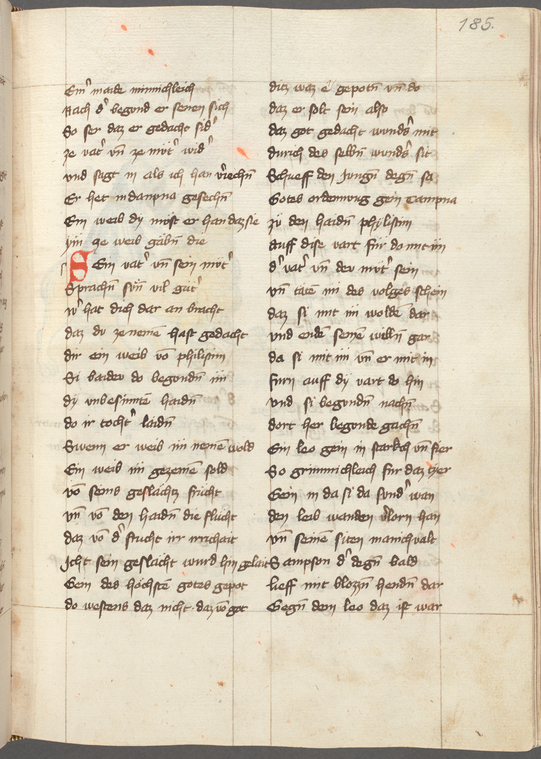 185.
Ein' maide minnichleich
Nach d' begond er senen sich
So ser daz er gedacht sid'
ze vat' vn̄ ze mut' wid'
vnd sagt in als ich han v'iechn̄
Er het in danpna gesechn̄
Ein weib dy müst er han daz sie
ym ze weib gäbn̄ die
Sein vat' vn̄ sein mut'
Sprachn̄ sun vil gut'
w' hat dich dar an bracht
daz du ze neme hast gedacht
dir ein weib vo philistin
Si baider do begondn̄ im
dy vnbesinnte haidn̄
do ir tocht' laidn̄
Swenn er weib im nemē wold
Ein weib im gezemē sold
vō seins geslächtz frücht
vn̄ vō den haidn̄ die flucht
daz vō d' frucht ir irrichait
Icht sein geslächt wurd hin gelait
Gein des höchstē gotes gepot
do westens daz nicht daz vō got
ditz waz e gepotn̄ vn̄ do
daz er solt sein also
daz got gedacht wund's mit
durich des selbn̄ wund's sit
Schueff den Jungn̄ degn̄ sa
Gotes ordenung gein Tampna
zü den haidn̄ phylistin
Auff dise vart für do mit im
d' vat' vn̄ dev mut' sein
vn̄ täte im des volges schein
daz si mit im woldē dar
vnd endē seinē willn̄ gar
da si mit im vn̄ er mit in
furn auff dy vart do hin
vnd si begundn̄ nachn̄
dort her begunde gachn̄
Ein leo gein in starkch vn̄ fier
So grimmichleich für daz tyer
Gein in da si da sund' wan
den leib wanden v'lorn han
vn̄ seinē siten manichualt
Sampson d' degn̄ bald
lieff mit blozzn̄ hendn̄ dar
Gegn̄ dem leo daz ist war